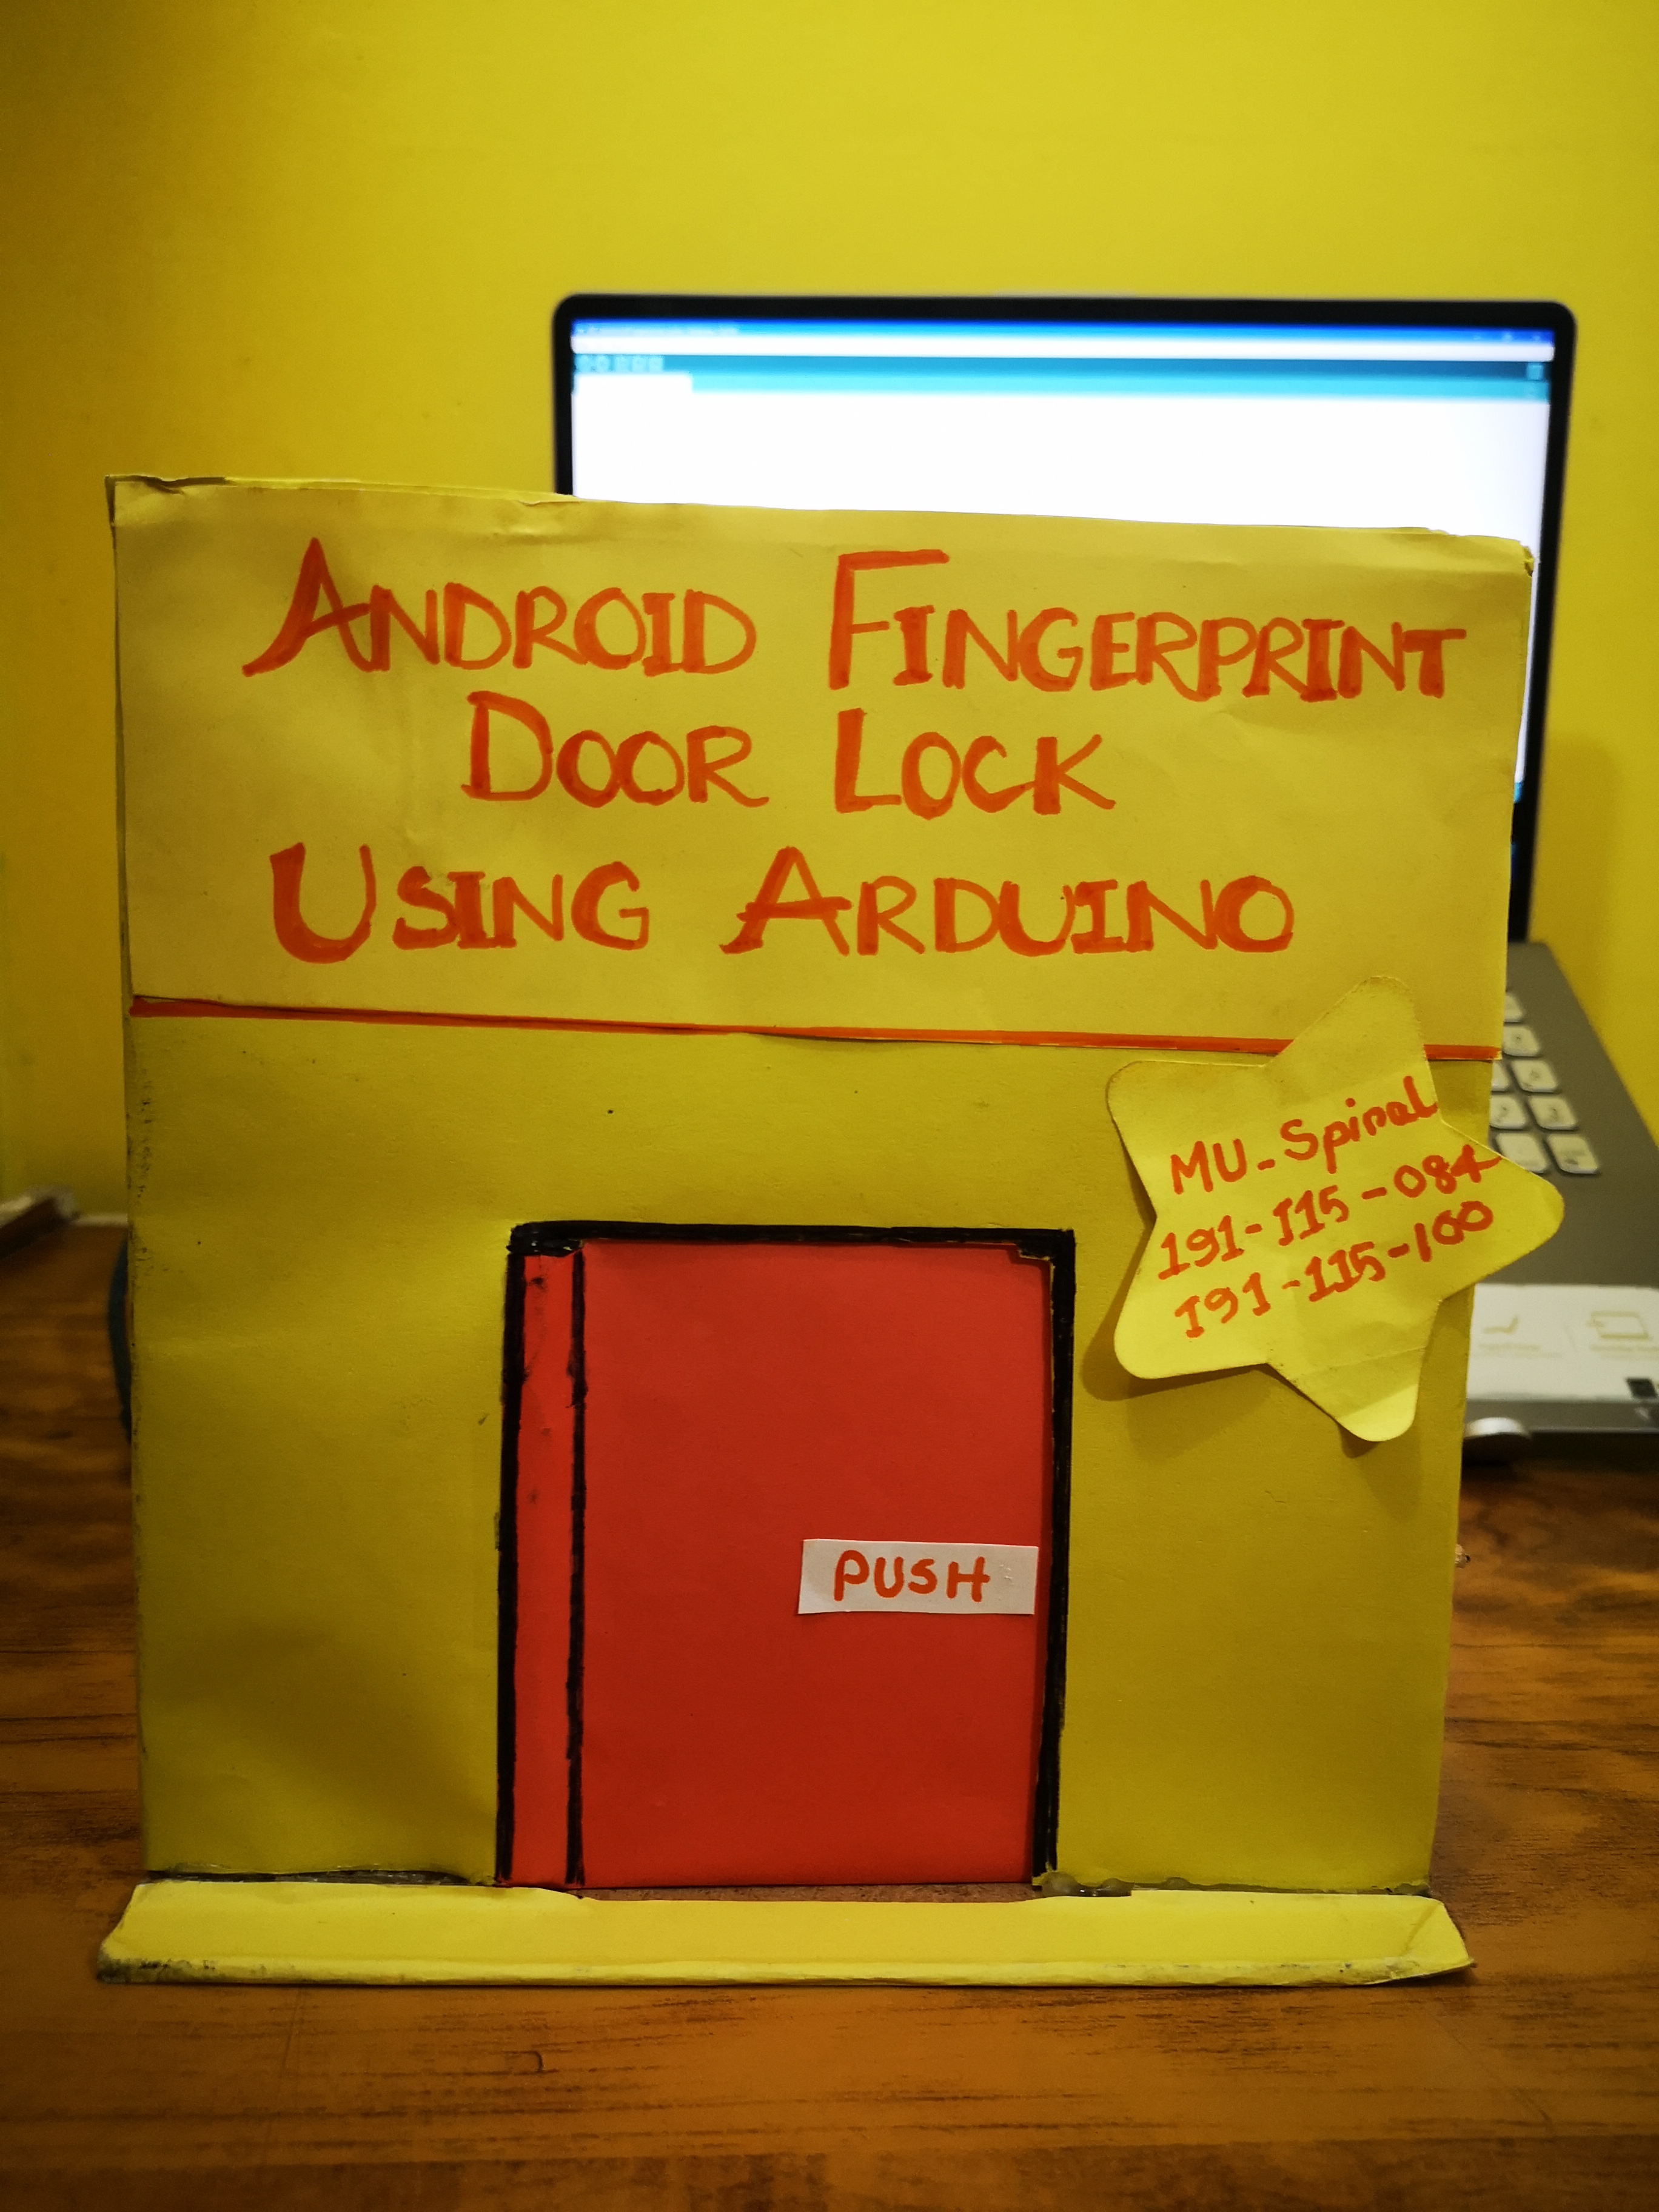 ANDROID FINGERPRINT
DOOR LOCK
USING ARDUINO
MU_Spiral
191-115-084
191-115-100
PUSH